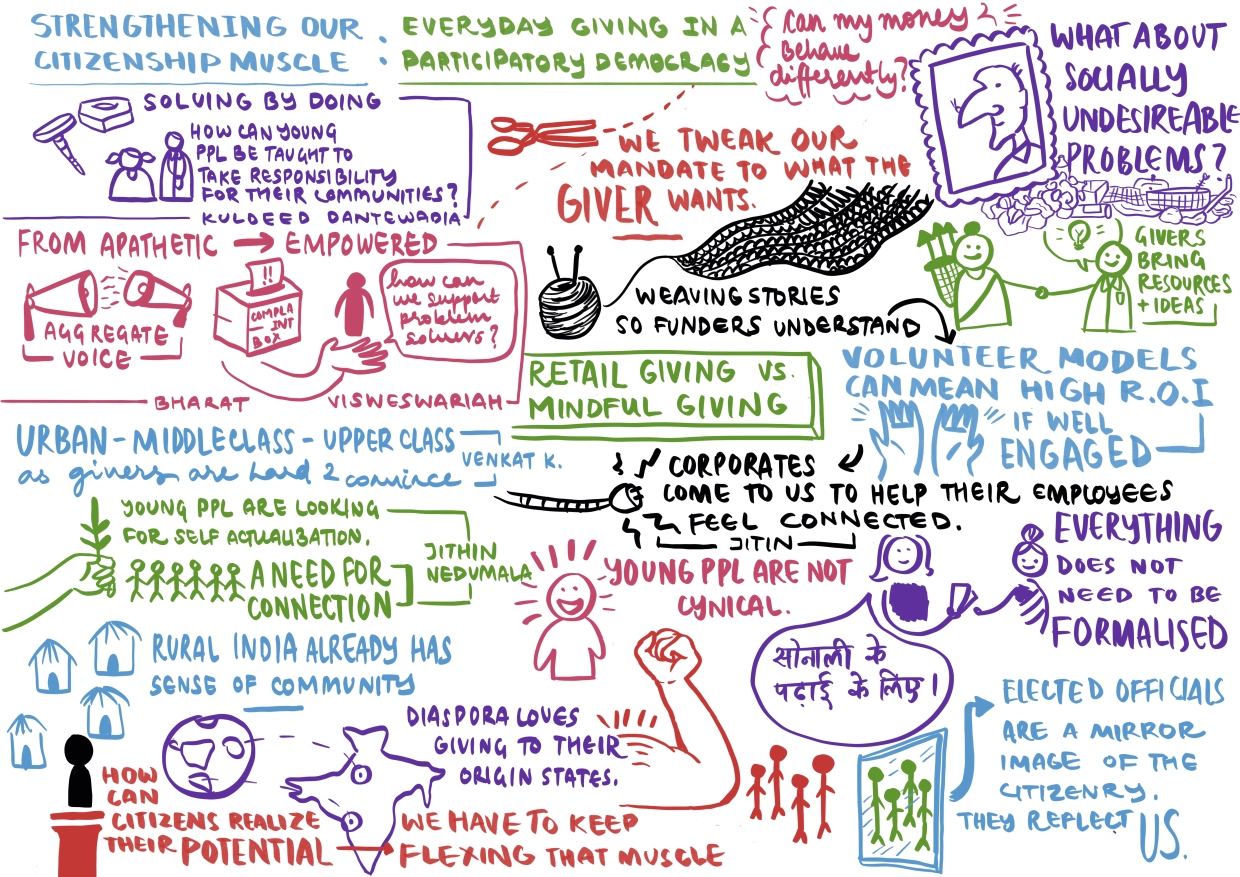 STRENGTHENING OUR
CITIZENSHIP MUSCLE :
EVERYDAY GIVING IN A
PARTICIPATORY DEMOCRACY
Can my money
behave
differently?
WHAT ABOUT
SOCIALLY
UNDESIREABLE
PROBLEMS?
SOLVING BY DOING
HOW CAN YOUNG
PPL BE TAUGHT TO
TAKE RESPONSIBILITY
FOR THEIR COMMUNITIES?
KULDEED DANTEWADIA
WE TWEAK OUR
MANDATE TO WHAT THE
GIVER WANTS.
FROM APATHETIC → EMPOWERED
AGGREGATE
VOICE
!!
COMPLA
INT
BOX
how can
we support
problem
solvers?
BHARAT VISWESWARIAH
WEAVING STORIES
SO FUNDERS UNDERSTAND
GIVERS
BRING
RESOURCES
+ IDEAS
RETAIL GIVING VS.
MINDFUL GIVING
VOLUNTEER MODELS
CAN MEAN HIGH R.O.I
IF WELL
ENGAGED
URBAN-MIDDLECLASS-UPPER CLASS
as givers are hard 2 convince
VENKAT K.
CORPORATES
COME TO US TO HELP THEIR EMPLOYEES
FEEL CONNECTED.
JITIN
YOUNG PPL ARE LOOKING
FOR SELF ACTUALISATION.
A NEED FOR
CONNECTION
JITHIN
NEDUMALA
YOUNG PPL ARE NOT
CYNICAL.
EVERYTHING
DOES NOT
NEED TO BE
FORMALISED
सोनाली के
पढ़ाई के लिए।
RURAL INDIA ALREADY HAS
SENSE OF COMMUNITY
DIASPORA LOVES
GIVING TO THEIR
ORIGIN STATES.
ELECTED OFFICIALS
ARE A MIRROR
IMAGE OF THE
CITIZENRY.
THEY REFLECT US.
HOW
CAN
CITIZENS REALIZE
THEIR POTENTIAL
WE HAVE TO KEEP
FLEXING THAT MUSCLE